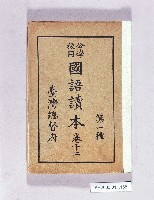 公學校用
國語讀本 卷十二
第一種
臺灣總督府